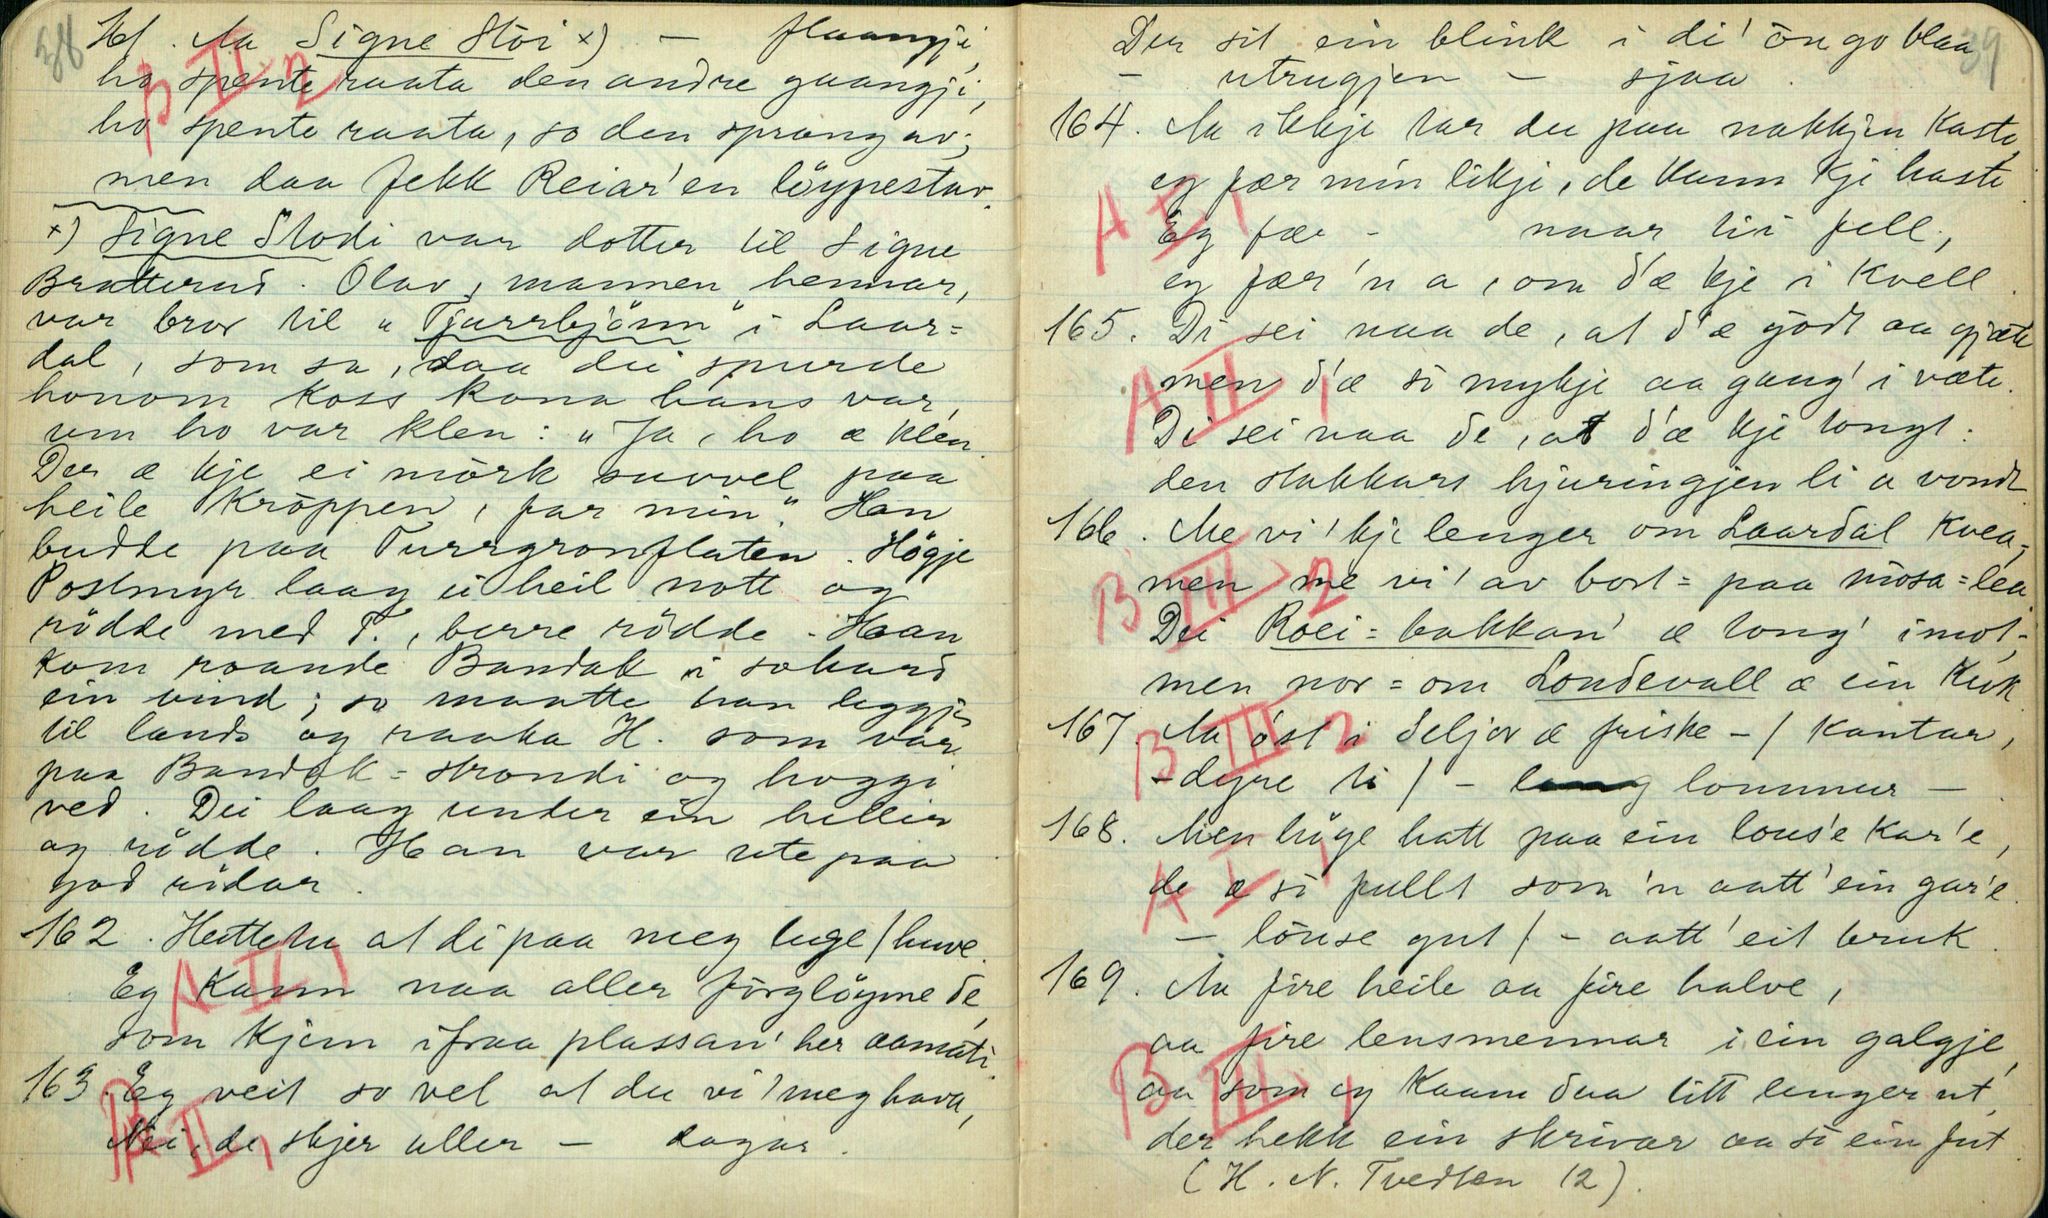 38
161. Aa Signe Stöi x) — flaangje,
ho spente raata den andre gaangji,
ho spente raata, so den sprang av;
men daa fekk Reiar'en löypestav.
x) Signe Stodi var dotter til Signe
Bratterud. Olav, mannen hennar,
var bror til "Tjurrbjönn" i Laar=
dal, som sa, daa dei spurde
honom koss kona hans var,
um ho var klen: "Ja, ho æ klen.
Der æ kje ei mörk suvvel paa
heile kroppen, far min." Han
budde paa Turrgronflaten. Högje
Postmyr laag ei heil nott og
rödde med T., berre rödde. Han
kom roande Bandak i so hard
ein vind; so maatte han leggje
til lands og raaka H. som var
paa Bandak=strondi og hoggi
ved. Dei laag under ein hellir
og rödde. Han var ute paa
god rödar.
A II 1
B II 2
162. Heitte du at di paa meg luge / huve.
Eg kann naa aller förglöyme de,
som kjem ifraa plassan' her aamati.
163. Eg veit so vel at du vi' meg hava,
Nei, de skjer aller — dagar.
A II 1
39
Der sit ein blink i di' öugo blaa
— utrugjen — sjaa.
164. Aa ikkje tar du paa nakkjen kaste,
eg fær min likje, de kann kje haste
Eg fær — naar li i fell,
eg fær 'n a, om d'æ kje i kvell.
A II 1
165. Di sei naa de, at d'æ godt aa gjæte
men d'æ so mykje aa gang' i væte.
Di sei naa de, at d'æ kje langt:
den stakkars hjuringjen li a vondt
A III 1
166. Me vi' kje lenger om Laardal kvea,
men me vi' av bort= paa mosa=lea.
Dei Roei=bakkan' æ tong' imot,
men nor=om Londevall æ ein
B III 2
167. Aa öst i Seljor æ friske — / kantar,
— dyre ti / — lommur —
B III 2
168. Men höge hatt paa ein louse kar'e,
de æ so fullt som 'n aatt' ein gar'e.
— löuse gut / — aatt' eit bruk.
A I 1
169. Aa fire heile aa fire halve,
aa fire lensmennar i ein galgje,
aa som eg kaam daa litt lenger ut,
der hekk ein skrivar aa so ein fut
(H. N. Tvedten 12).
B III 1